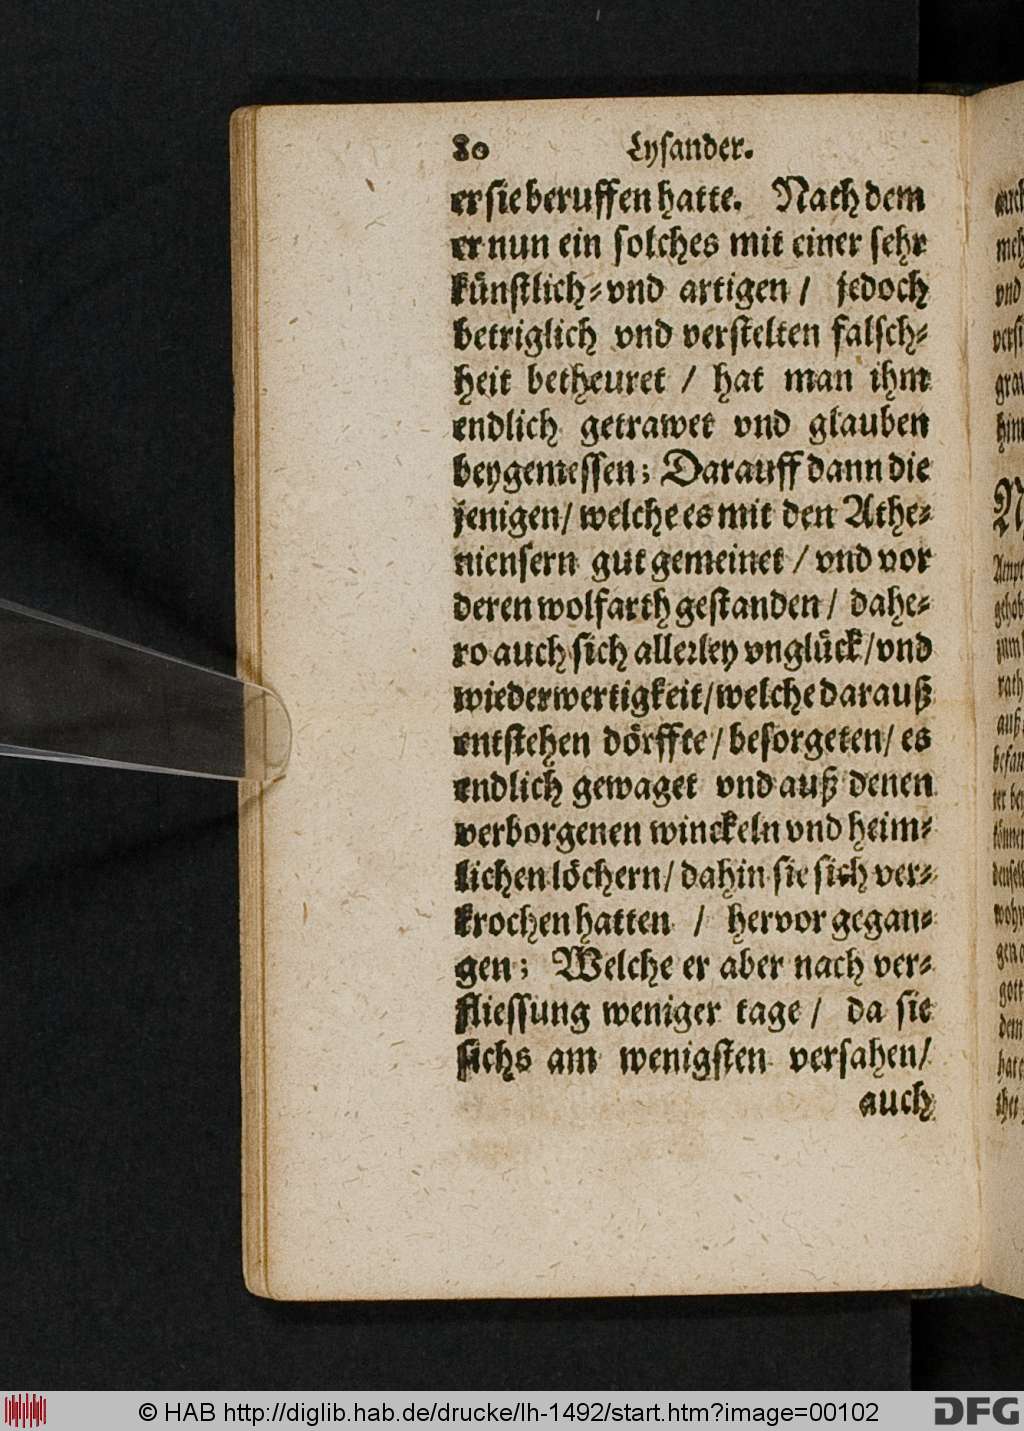 80 Lysander.
er sie beruffen hatte. Nach dem
er nun ein solches mit einer sehr
künstlich-vnd artigen / jedoch
betriglich vnd verstelten falsch-
heit betheuret / hat man ihm
endlich getrawet vnd glauben
beygemessen; Darauff dann die
jenigen / welche es mit den Athe-
niensern gut gemeinet / vnd vor
deren wolfarth gestanden / dahe-
ro auch sich allerley vnglück / vnd
wiederwertigkeit / welche darauß
entstehen dörffte / besorgeten / es
endlich gewaget vnd auß denen
verborgenen winckeln vnd heim-
lichen löchern / dahin sie sich ver-
krochen hatten / hervor gegan-
gen; Welche er aber nach ver-
fliessung weniger tage / da sie
sichs am wenigsten versahen /
auch
© HAB http://diglib.hab.de/drucke/lh-1492/start.htm?image=00102
DFG